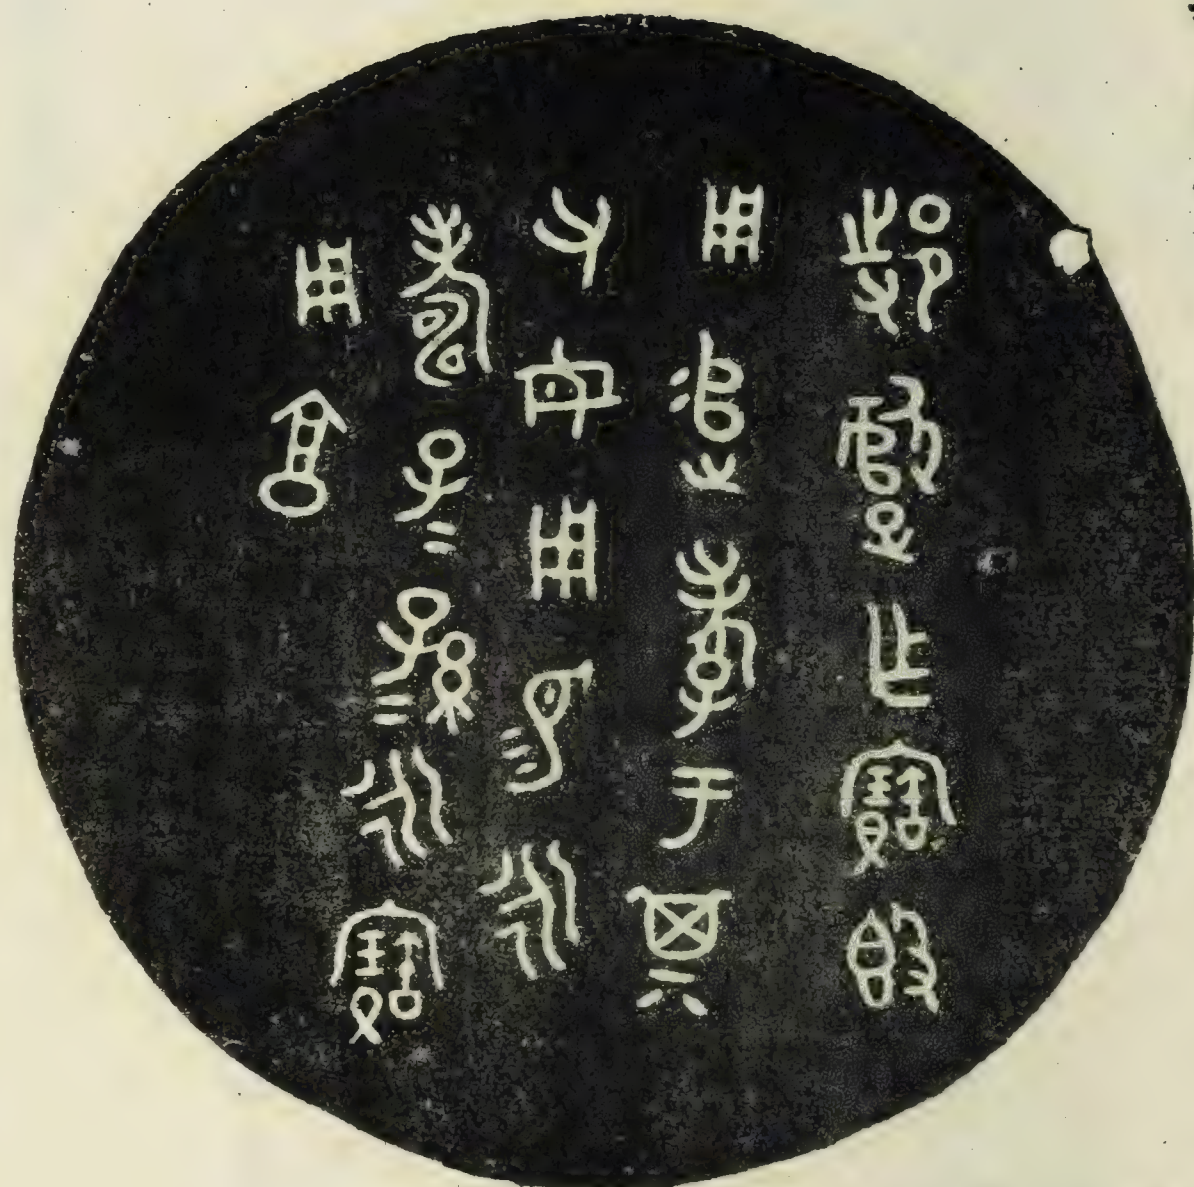 邿譴乍寶𣪘
用追孝于其
父母用易永
壽子=孫=永寶
用享